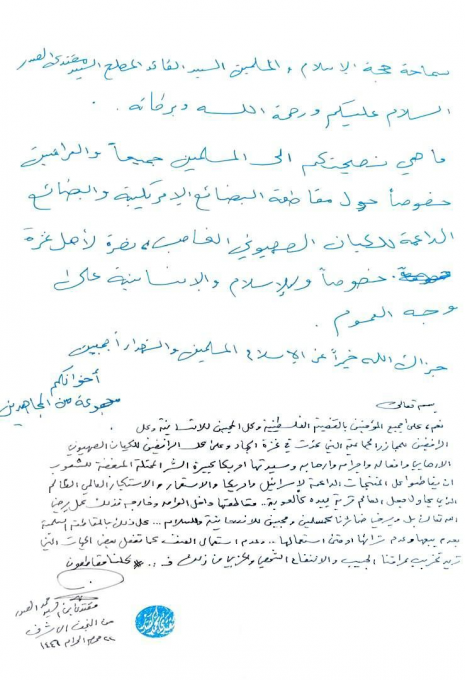 سماحة حجة الإسلام والمسلمين السيد القائد المصلح السيد مقتدى الصدر
السلام عليكم ورحمة الله وبركاته .
ما هي نصيحتكم الى المسلمين جميعاً والعراقيين
خصوصاً حول مقاطعة البضائع الامريكية والبضائع
الداعمة للكيان الصهيوني الغاصب، نصرة لأهل غزة
خصوصاً وللإسلام والإنسانية على
وجه العموم .
جزاك الله خيراً عن الإسلام المسلمين والشهداء أجمعين
أخوانكم
مجموعة من المجاهدين
بسمه تعالى
نعم، على جميع المؤمنين بالقضية الفلسطينية وكل المحبين للانسانية وكل
الرافضين للمجازر الجماعية التي حدثت في غزة الجهاد وعلى كل الرافضين للكيان الصهيوني
الارهابي وافعاله واجرامه وارهابه وسيدتها امريكا كبيرة الشر المحتلة المبغضة للشعوب
ان يقاطعوا كل المنتجات الداعمة لإسرائيل وامريكا والاستعمار والاستكبار العالمي الظالم
الذي يحاول جعل العالم قرية بيده كألعوبة .. مقاطعتها داخل العراق وخارجه فذلك عمل يرضي
الله تعالى بل ويرضي ضمائرنا كمسلمين ومحبين للانسانية وللسلام ... كل ذلك بالمقاطعة السلمية
بعدم بيعها وعدم شرائها او حتى استعمالها .. وعدم استعمال العنف كما تفعل بعض الجهات التي
تريد تخريب عراقنا الحبيب والانتفاع الشخصي والحزبي من ذلك .. كلنا مقاطعون
مقتدى بن السيد محمد الصدر
من النجف الاشرف
٢٢ محرم الحرام ١٤٤٦